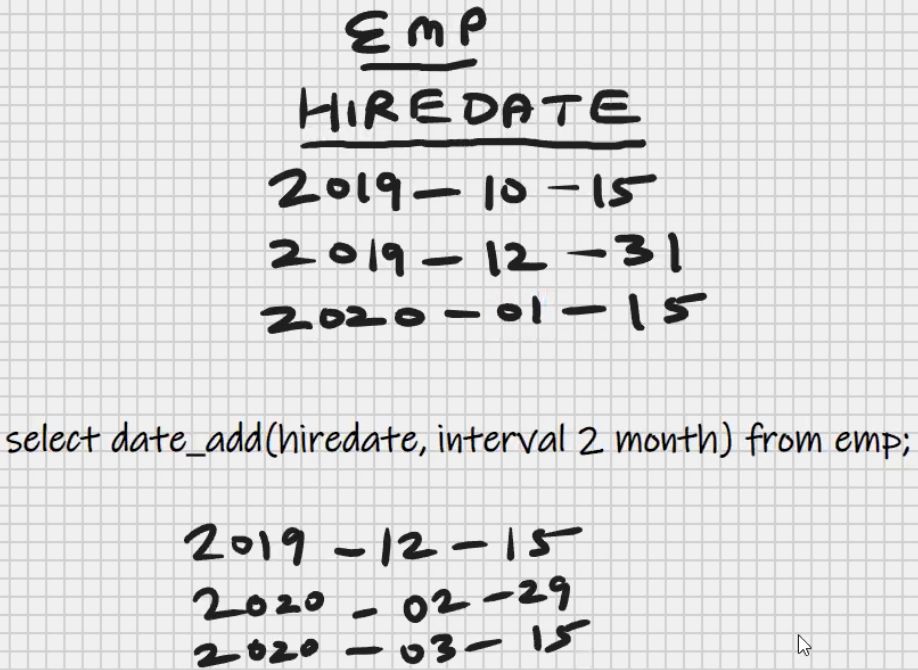 EMP
HIREDATE
2019-10-15
2019-12-31
2020-01-15
select date_add(hiredate, interval 2 month) from emp;
2019-12-15
2020-02-29
2020-03-15